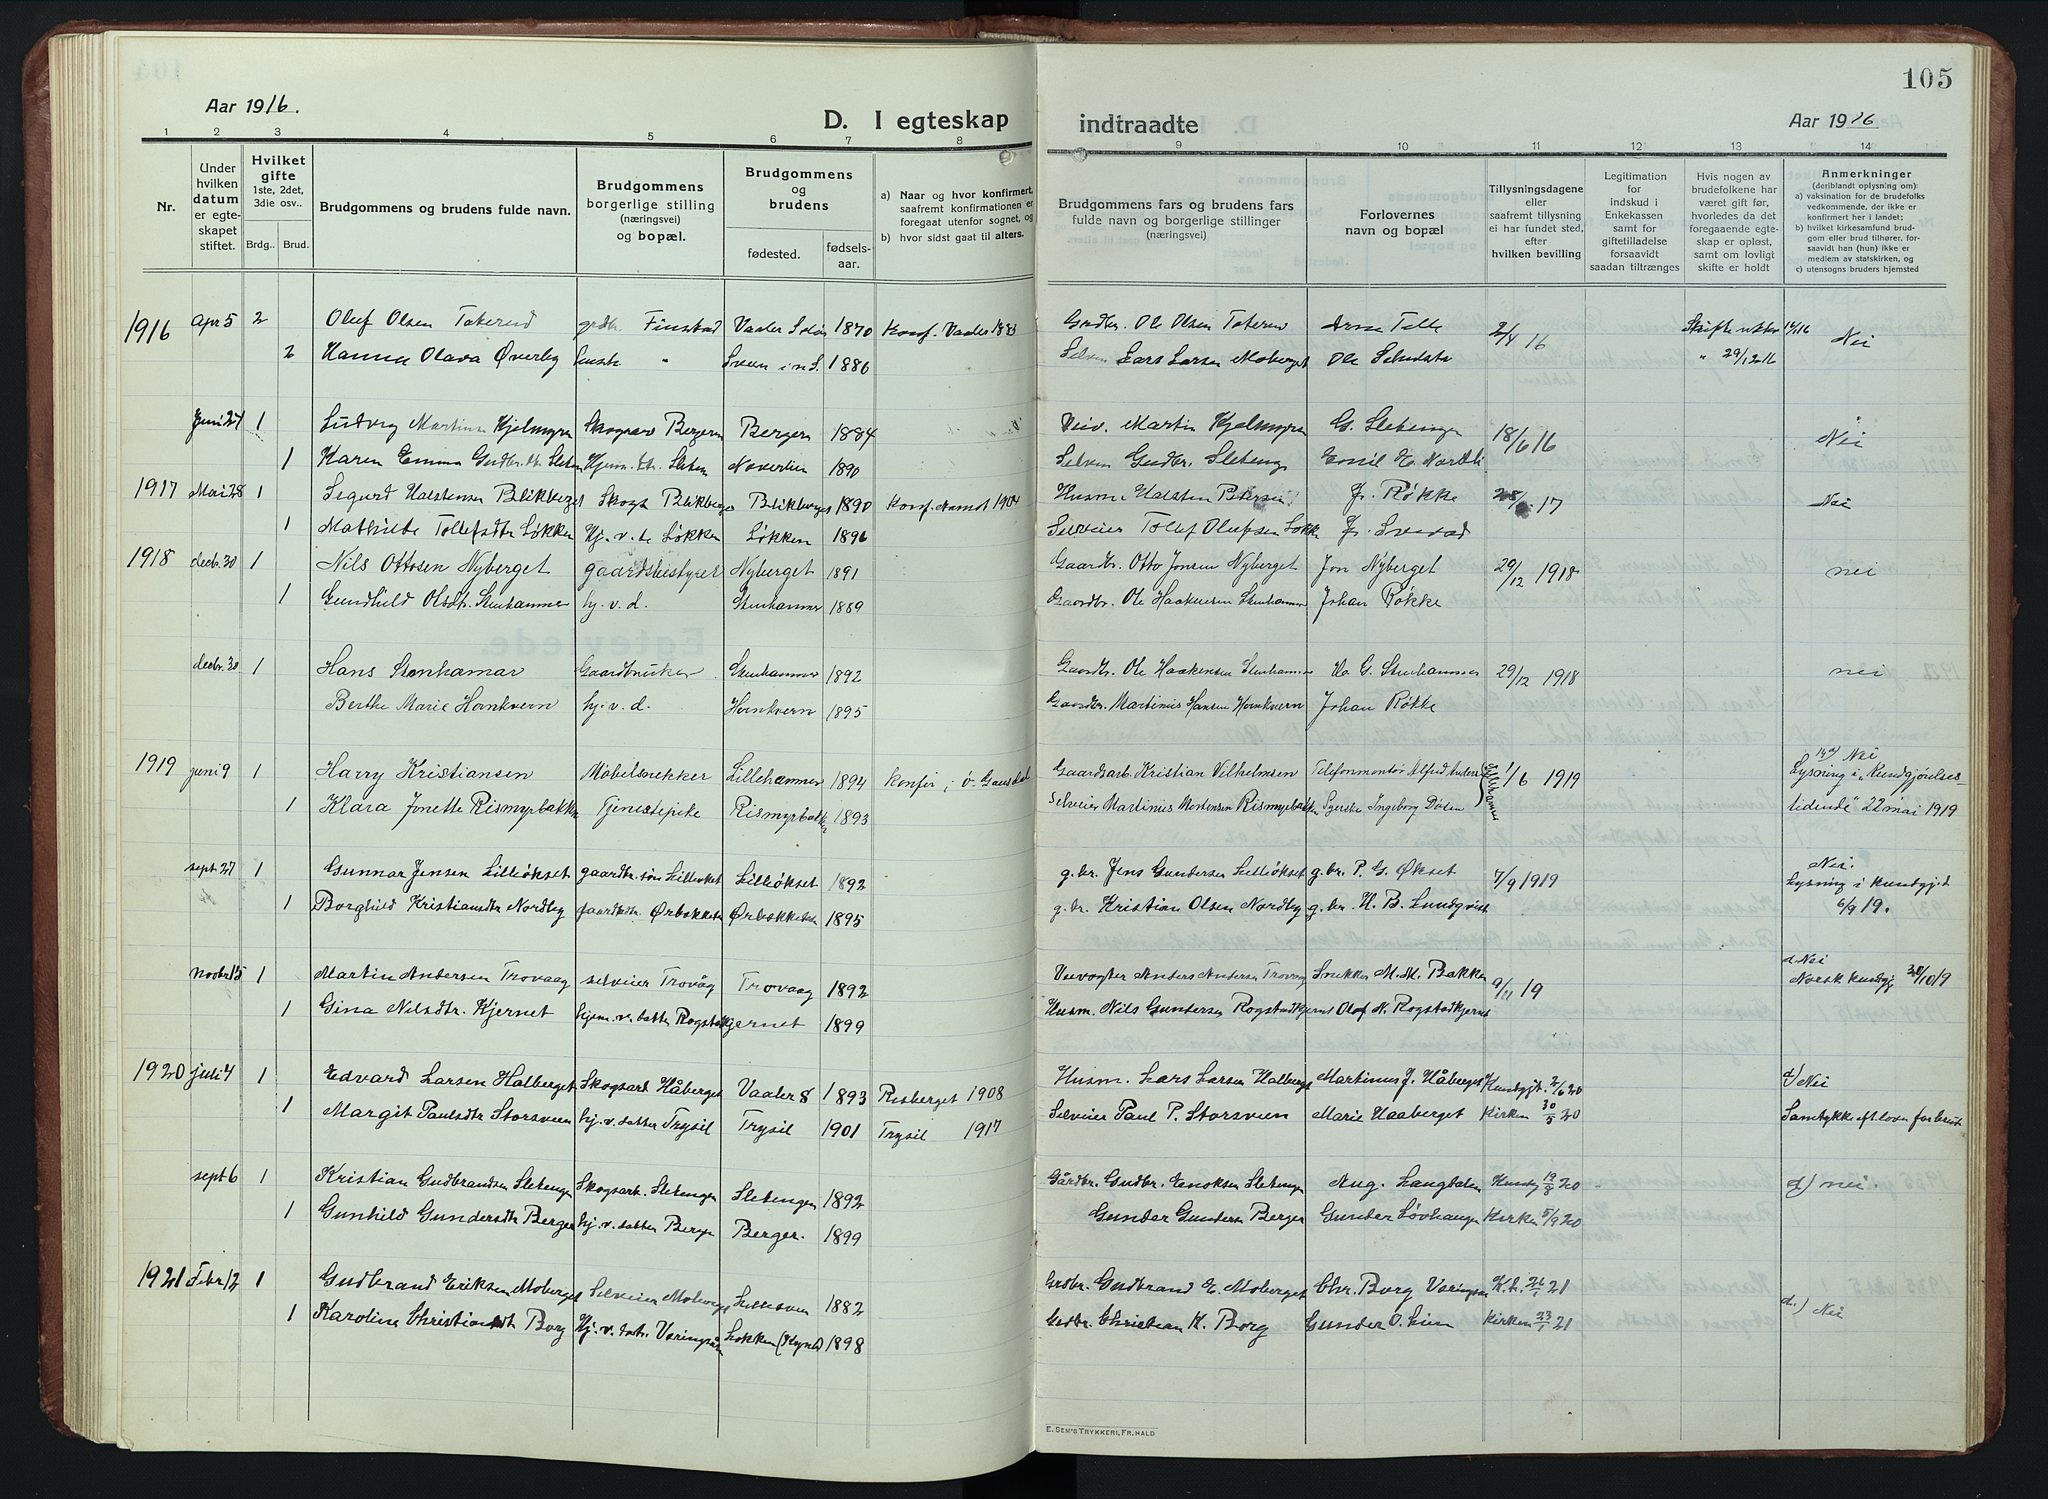 105
Aar 1916.
D. I egteskap
indtraadte
Aar 1916
1 2 3 4 5 6 7 8 9 10 11 12 13 14
Nr.
Under hvilken datum er egteskapet stiftet.
Hvilket gifte 1ste, 2det, 3die osv..
Brdg.. Brud.
Brudgommens og brudens fulde navn.
Brudgommens borgerlige stilling (næringsvei) og bopæl.
Brudgommens og brudens
fødested. fødselsaar.
a) Naar og hvor konfirmert, saafremt konfirmationen er foregaat utenfor sognet, og
b) hvor sidst gaat til alters.
Brudgommens fars og brudens fars fulde navn og borgerlige stillinger (næringsvei)
Forlovernes navn og bopæl
Tillysningsdagene eller saafremt tillysning ei har fundet sted, efter hvilken bevilling
Legitimation for indskud i Enkekassen samt for giftetilladelse forsaavidt saadan tiltrænges
Hvis nogen av brudefolkene har været gift før, hvorledes da det foregaaende egteskap er opløst, samt om lovligt skifte er holdt
Anmerkninger (deriblandt oplysning om):
a) vaksination for de brudefolks vedkommende, der ikke er konfirmert her i landet;
b) hvilket kirkesamfund brudgom eller brud tilhører, forsaavidt han (hun) ikke er medlem av statskirken, og
c) utensogns bruders hjemsted
1916 Apr 5 2 Oluf Olsen Finstad Vaaler 1870 Konf. Vaaler Grdbr. Ole Olsen Arne 2/4 16 Nei
2 Hanna Olava Øverby " 1886 Lars Larsen Moberget Ole " 29/12 016
Juni 24 1 Ludvig Martins. Kjelmyren Skogsarb Bergen Bergen 1884 Martin Kjelmyren G. Sletengen 18/6 16 Nei
1 Karen Emma Gudbr.dtr. Sleten Hjem. Sleten 1890 Gudbr. Sletengen Emil H.
1917 Mai 28 1 Segurd Halstensen Blikberget Skogs Blikberget Blikberget 1890 Konf. 1904 Husm. Halsten Petersen Jr. Røkke 17 Nei
1 Mathilde Tollefsdtr Løkken Hj. v. de Løkken Løkken 1896 Selveier Tollef Olufsen Løkken
1918 decbr. 30 1 Nils Ottosen Nyberget gaardsbestyrer Nyberget 1891 Gaardbr. Otto Jonsen Nyberget Jon Nyberget 29/12 1918 nei
1 Gundhild Olsdtr. Stenhammer hj. v. d. Stenhammer 1889 Gaardbr. Ole Haakensen Stenhammer Johan Røkke
decbr. 30 1 Hans Stenhamar Gaardbruker Stenhammer 1892 Gaardbr. Ole Haakensen Stenhammer Ha G. Stenhammer 29/12 1918 nei
Berthe Marie Hornkvern hj. v. d. Hornkvern 1895 Gaardbr. Martinius Hansen Hornkvern Johan Røkke
1919 juni 9 1 Harry Kristiansen Møbelsnekker Lillehammer 1894 konfir i Ø. Gausdal Gaardsarb. Kristian Vilhelmsen Telefonmontør Alfred 1/6 1919 Nei
Lysning i „Kundgjørelses
1 Klara Jonette Rismyrbakken Tjenestepike Rismyrbakken 1893 Selveier Martinius Mortensen Rismyrbakken Syerske Ingeborg Lillehammer tidende" 22 mai 1919
sept 27 1 Gunnar Jensen Lilleökset gaardbr. søn Lilleöket Lilleökset 1892 g.br. Jens Gundersen Lilleökset g.br. P. G. Økset 7/9 1919 Nei.
Lysning i kundgjd
1 Borghild Kristiansdtr Nordby gaardbdtr. Ørbakken Ørbakken 1895 g.br. Kristian Olsen Nordby g.br. H. B. Lundqvist 6/9 19.
novbr 15 1 Martin Andersen Trovaag selveier Trovåg Trovaag 1892 Veivogter Anders Andersen Trovaag Snekker M. M. Bakken 9/11 19 d Nei
Norsk kundgj 30/10 19
1 Gina Nilsdtr. Kjernet hjem. v. datter Rogstadkjernet 1899 Husm. Nils Gundersen Rogstadkjernet Olaf N. Rogstadkjernet
1920 juli 4 1 Edvard Larsen Halberget Skogsarb Håberget Vaaler S 1893 Risberget 1908 Husm. Lars Larsen Halberget Martinus J. Håberget Kundgjt. 2/6 20 d) Nei
1 Margit Paulsdtr Storsveen hj. v. datter Trysil Trysil 1901 Trysil 1917 Selveier Paul P. Storsveen Marie Haaberget Kirken 30/5 20 Samtykke eft. loven for brud
sept 6 1 Kristian Gudbrandsen Sletengen Skogsarb. Sletengen Sletengen 1892 Gårdbr. Gudbr. Enoksen Sletengen Aug. Langdalen Kundg 19/8 20 d) nei.
1 Gunhild Gundersdtr Berger hj. v. datter Berger Berger. 1899 Gunder Gundersen Berger Gunder Løvhaugen Kirken 5/9 20
1921 Febr 12 1 Gudbrand Eriksen Moberget Selveier Moberget 1882 Grdbr. Gudbrand E. Moberget Chr. Borg K. t. 21 d.) Nei
1 Karoline Christiansdt Borg Hj. v. datr. Løkken 1898 Grdbr. Christian K. Borg Gunder O. Lien Kirken 23/1 21
E. SEM'S TRYKKERI, FR.HALD